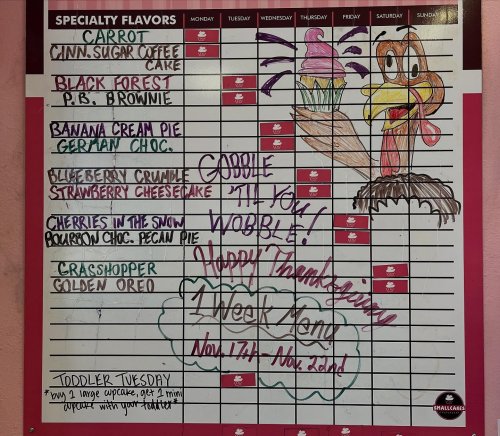 SPECIALTY FLAVORS MONDAY TUESDAY WEDNESDAY THURSDAY FRIDAY SATURDAY SUNDAY
CARROT
CINN. SUGAR COFFEE
CAKE
BLACK FOREST
P.B. BROWNIE
BANANA CREAM PIE
GERMAN CHOC.
BLUEBERRY CRUMBLE
STRAWBERRY CHEESECAKE
CHERRIES IN THE SNOW
BOURBON CHOC. PECAN PIE
GRASSHOPPER
GOLDEN OREO
GOBBLE
'TIL YOU
WOBBLE!
Happy Thanksgiving
1 Week Menu
Nov. 17th - Nov. 22nd
TODDLER TUESDAY
*buy 1 large cupcake, get 1 mini
cupcake with your toddler*
SMALLCAKES